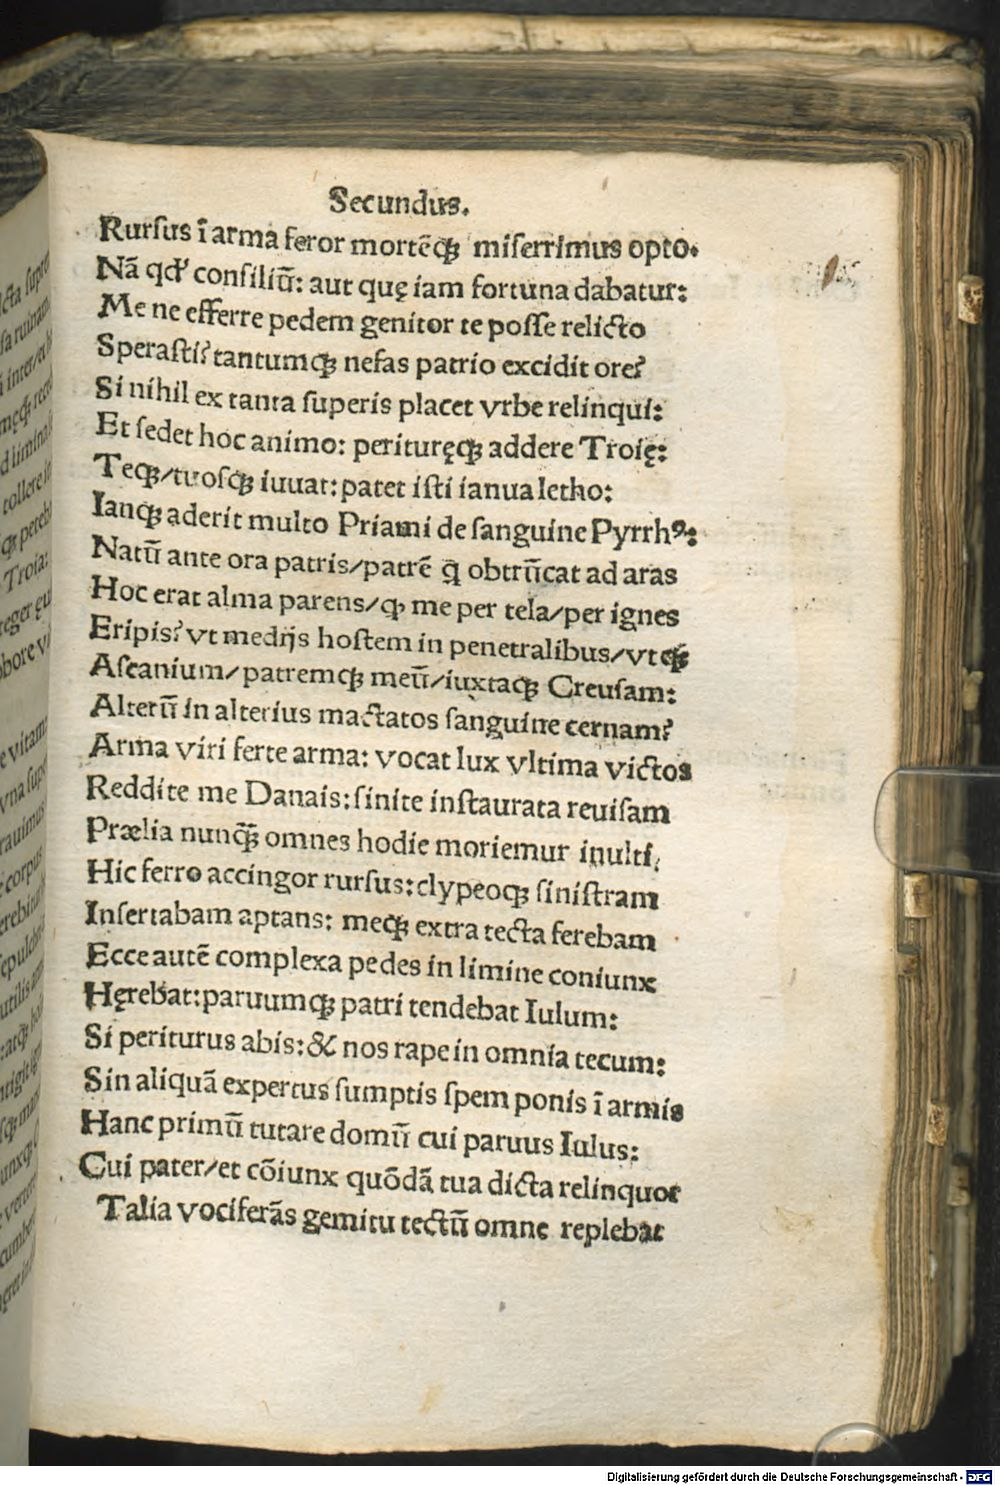 Secundus.
Rurſus ī arma feror mortēqꝫ miſerrimus opto.
Nā qd' conſiliū: aut quę iam fortuna dabatur:
Me ne efferre pedem genitor te poſſe relicto
Speraſti? tantumqꝫ nefas patrio excidit ore?
Si nihil ex tanta ſuperis placet vrbe relinqui:
Et ſedet hoc animo: perituręqꝫ addere Troię:
Teqꝫ/tuoſqꝫ iuuat: patet iſti ianua letho:
Ianqꝫ aderit multo Priami de ſanguine Pyrrhꝰ:
Natū ante ora patris/patrē q̄ obtrūcat ad aras
Hoc erat alma parens/ꝙ me per tela/per ignes
Eripis? vt medijs hoſtem in penetralibus/vtqꝫ
Aſcanium/patremqꝫ meū/iuxtaqꝫ Creuſam:
Alterū in alterius mactatos ſanguine cernam?
Arma viri ferte arma: vocat lux vltima victos
Reddite me Danais: ſinite inſtaurata reuiſam
Prælia nunqꝫ̄ omnes hodie moriemur inulti,
Hic ferro accingor rurſus: clypeoqꝫ ſiniſtram
Inſertabam aptans: meqꝫ extra tecta ferebam
Ecce autē complexa pedes in limine coniunx
Hęrebat: paruumqꝫ patri tendebat Iulum:
Si periturus abis: & nos rape in omnia tecum:
Sin aliquā expertus ſumptis ſpem ponis ī armis
Hanc primū tutare domū cui paruus Iulus:
Cui pater/et cōiunx quōdā tua dicta relinquor
Talia vociferās gemitu tectū omne replebat
Digitalisierung gefördert durch die Deutsche Forschungsgemeinschaft - DFG